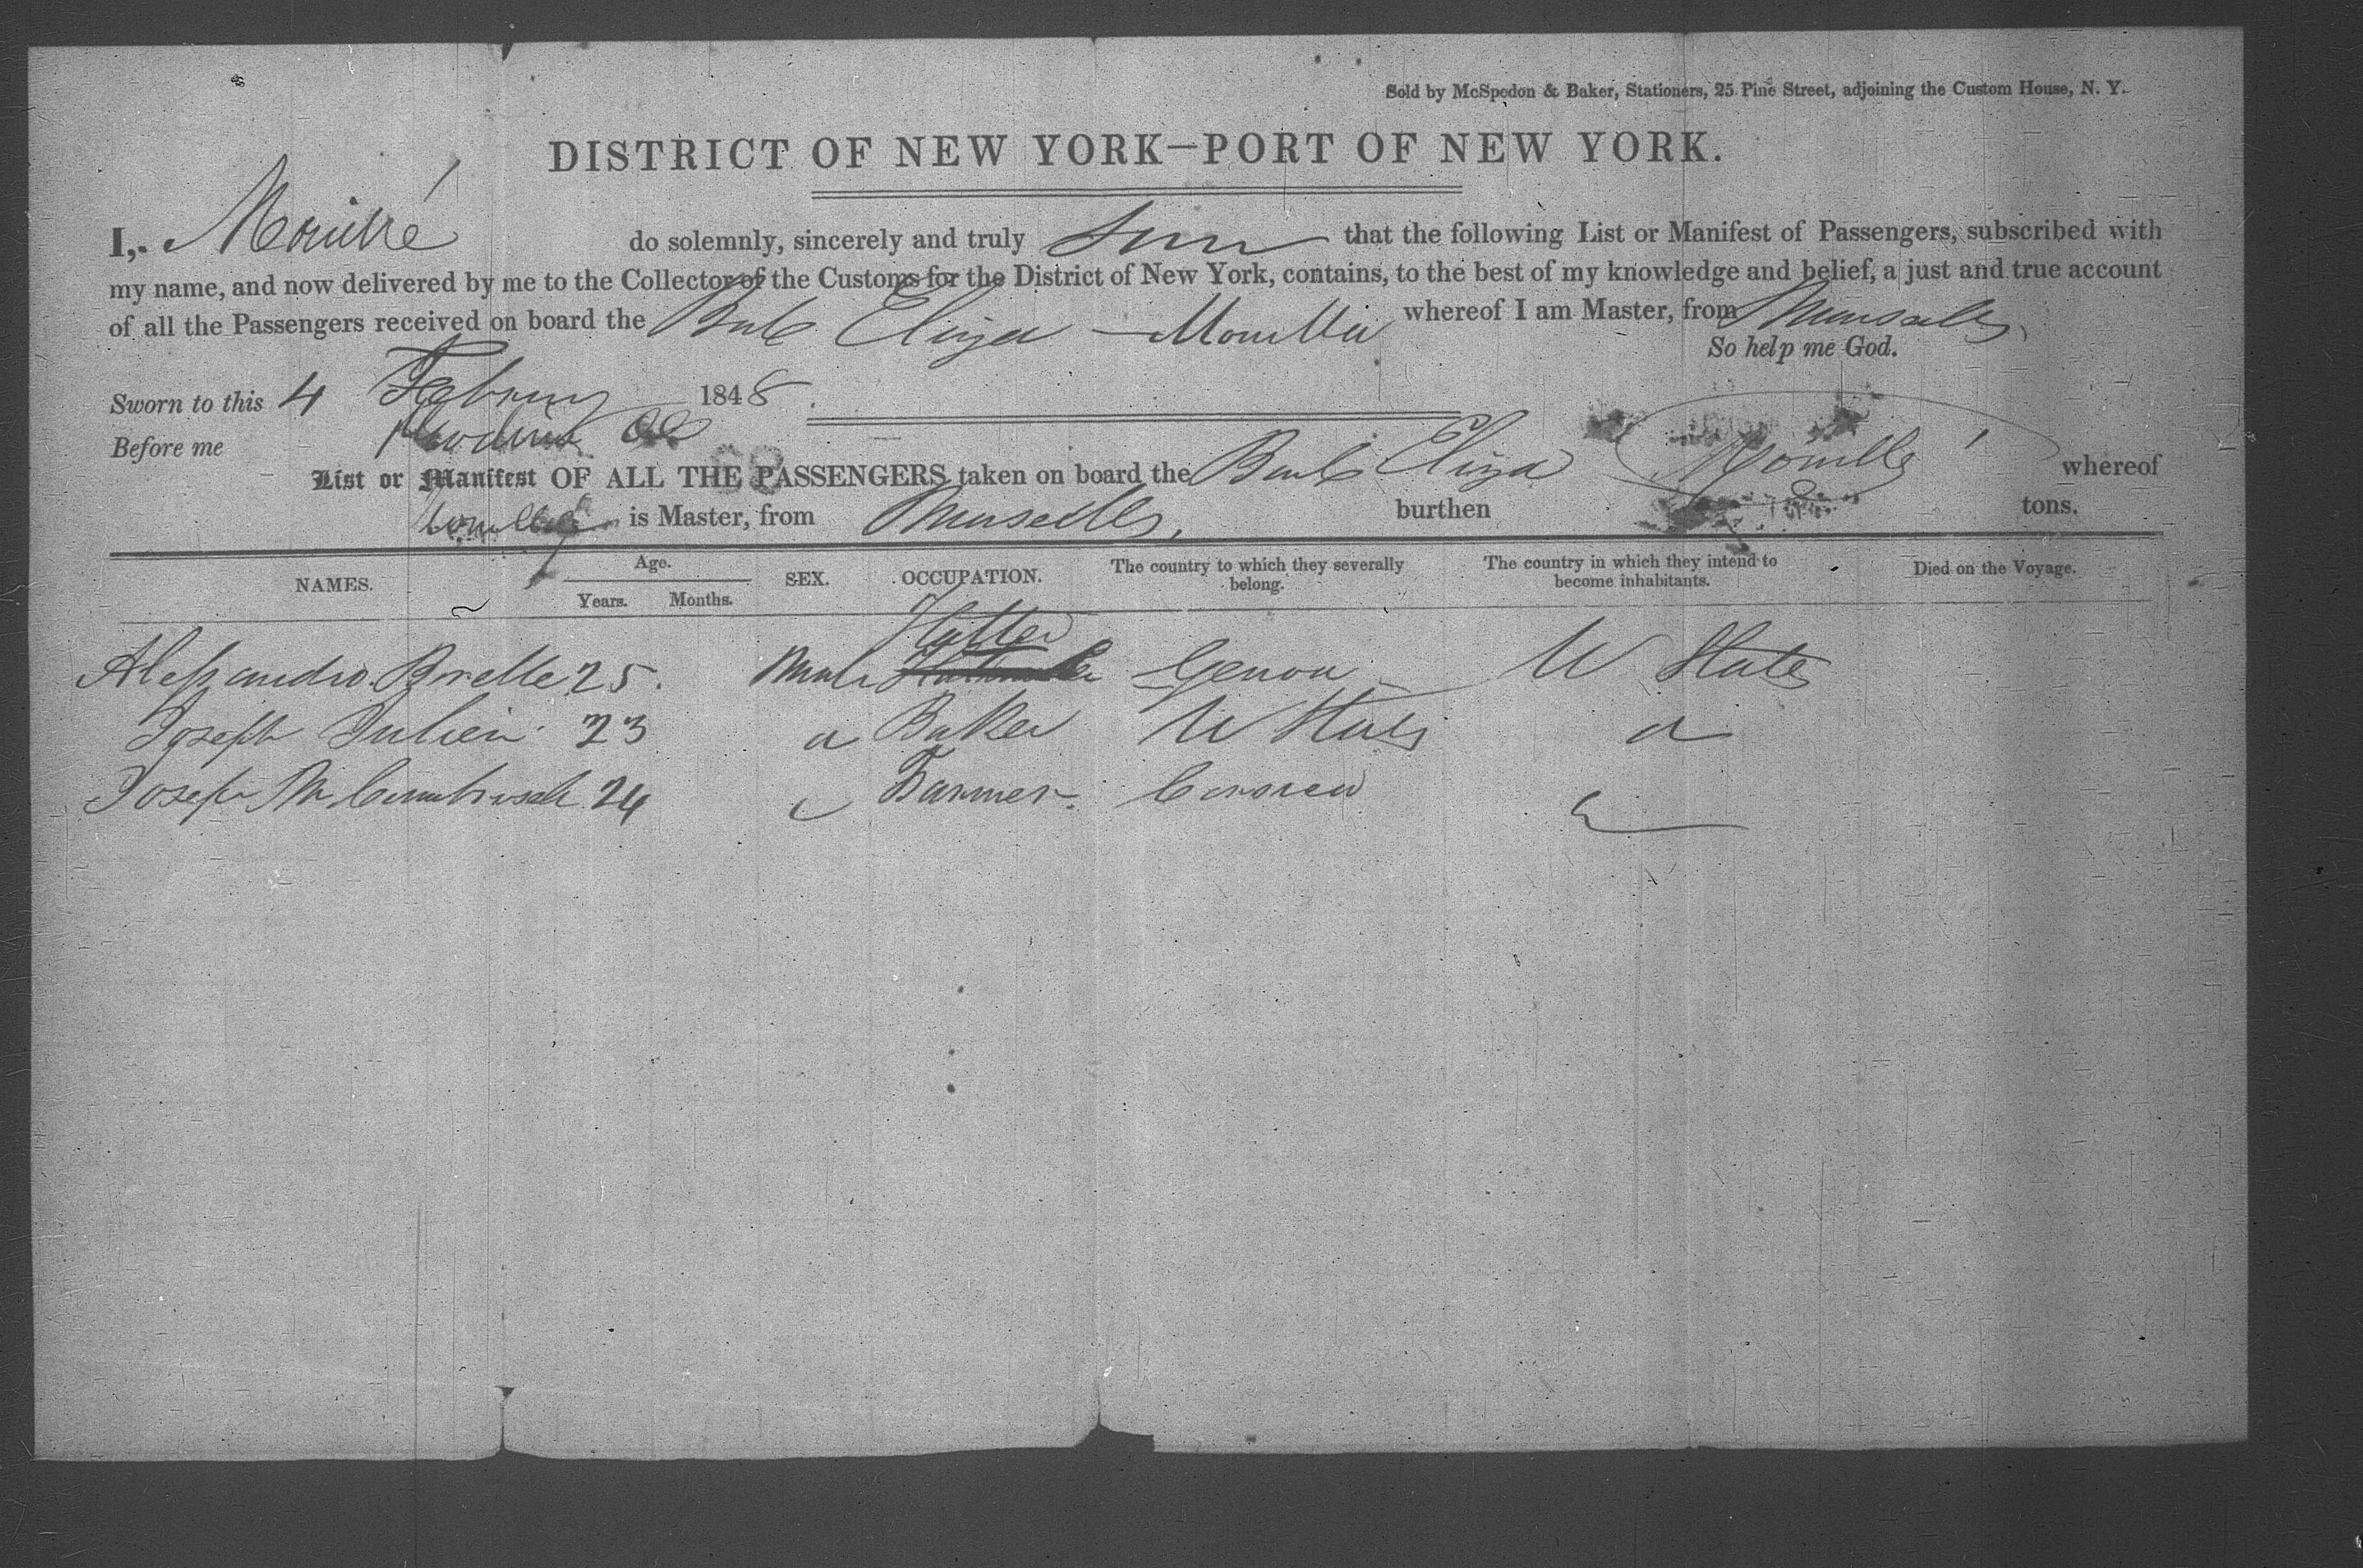 Sold by McSpedon & Baker, Stationers, 25 Pine Street, adjoining the Custom House, N. Y.
DISTRICT OF NEW YORK—PORT OF NEW YORK.
I, do solemnly, sincerely and truly that the following List or Manifest of Passengers, subscribed with
my name, and now delivered by me to the Collector of the Customs for the District of New York, contains, to the best of my knowledge and belief, a just and true account
of all the Passengers received on board the Bark Eliza whereof I am Master, from Marseilles
So help me God.
Sworn to this 4 February 1848
Before me
List or Manifest OF ALL THE PASSENGERS taken on board the Bark Eliza whereof
is Master, from Marseilles, burthen tons.
NAMES. Age. Years. Months. SEX. OCCUPATION. The country to which they severally belong. The country in which they intend to become inhabitants. Died on the Voyage.
Hatter
Alessandro 25. Male Genoa U States
Joseph Julien 23 Baker U States
Joseph 24 Farmer. Corsica